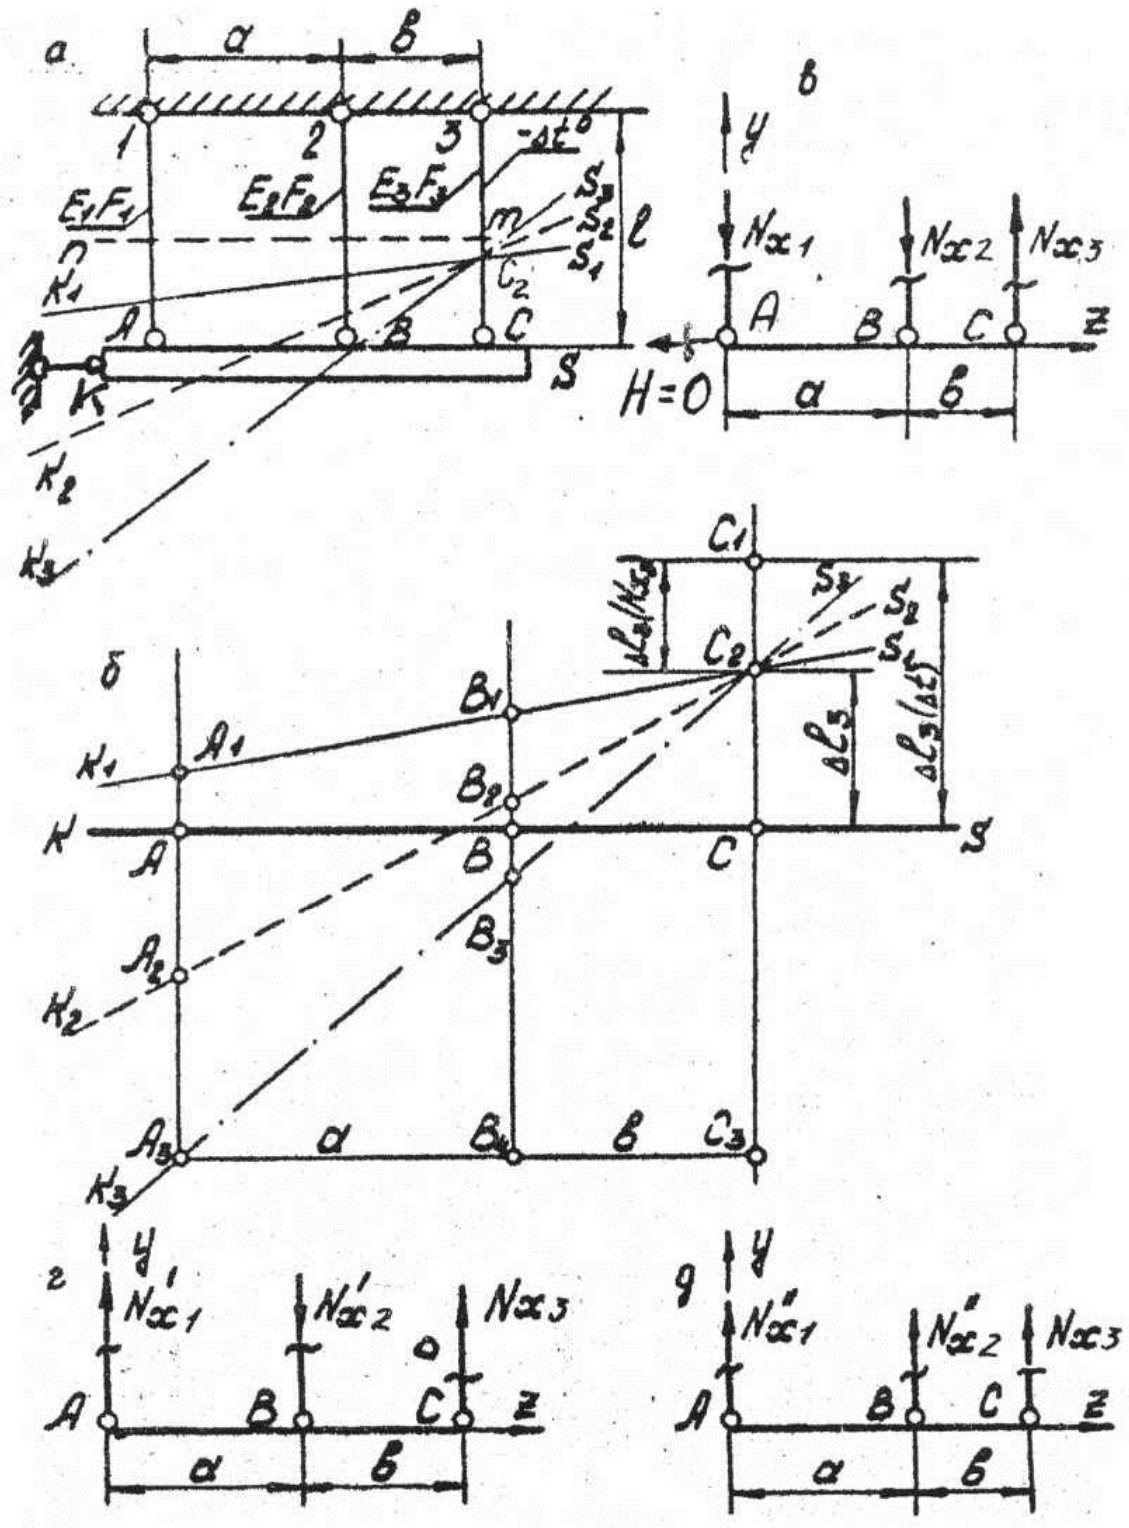 а
a
в
1
2
3
-Δt°
E₁F₁
E₂F₂
E₃F₃
S₃
S₂
S₁
m
n
C₂
l
K₁
A
B
C
K
S
K₂
K₃
в
y
Nx₁
Nx₂
Nx₃
A
B
C
z
H=0
a
в
б
C₁
ΔL₃(Nx₃)
S₃
S₂
S₁
C₂
ΔL₃
ΔL₃(Δt)
B₁
A₁
K₁
B₂
K
A
B
C
S
A₂
B₃
K₂
A₃
a
B₄
в
C₃
K₃
г
y
N'x₁
N'x₂
Nx₃
A
B
C
z
a
в
д
y
N"x₁
N"x₂
Nx₃
A
B
C
z
a
в